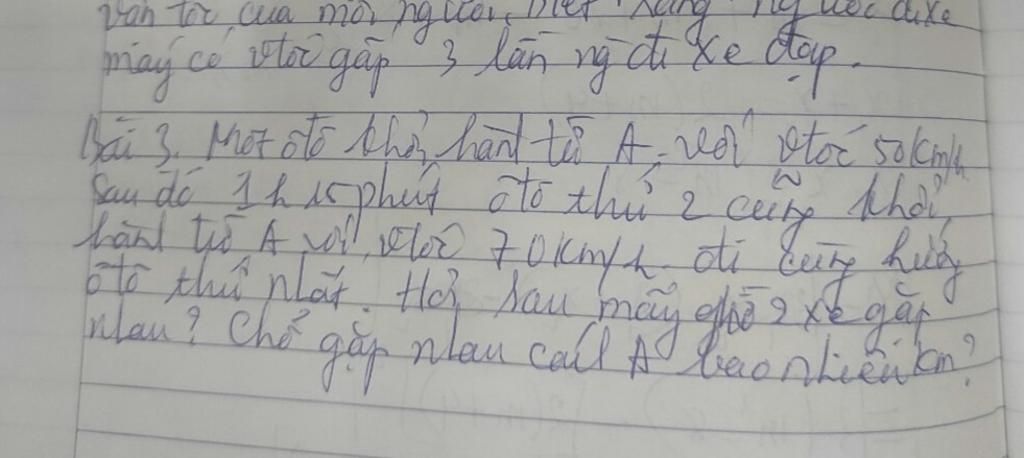 vận tốc của mỗi người, biết rằng người đi xe
máy có vtốc gấp 3 lần ng đi xe đạp.
Bài 3. Một ôtô khởi hành từ A, với vtốc 50km/h
Sau đó 1h 15phút ôtô thứ 2 cũng khởi
hành từ A với vtốc 70km/h đi cùng hướng
ôtô thứ nhất. Hỏi sau mấy giờ 2 xe gặp
nhau? Chỗ gặp nhau cách A bao nhiêu km?